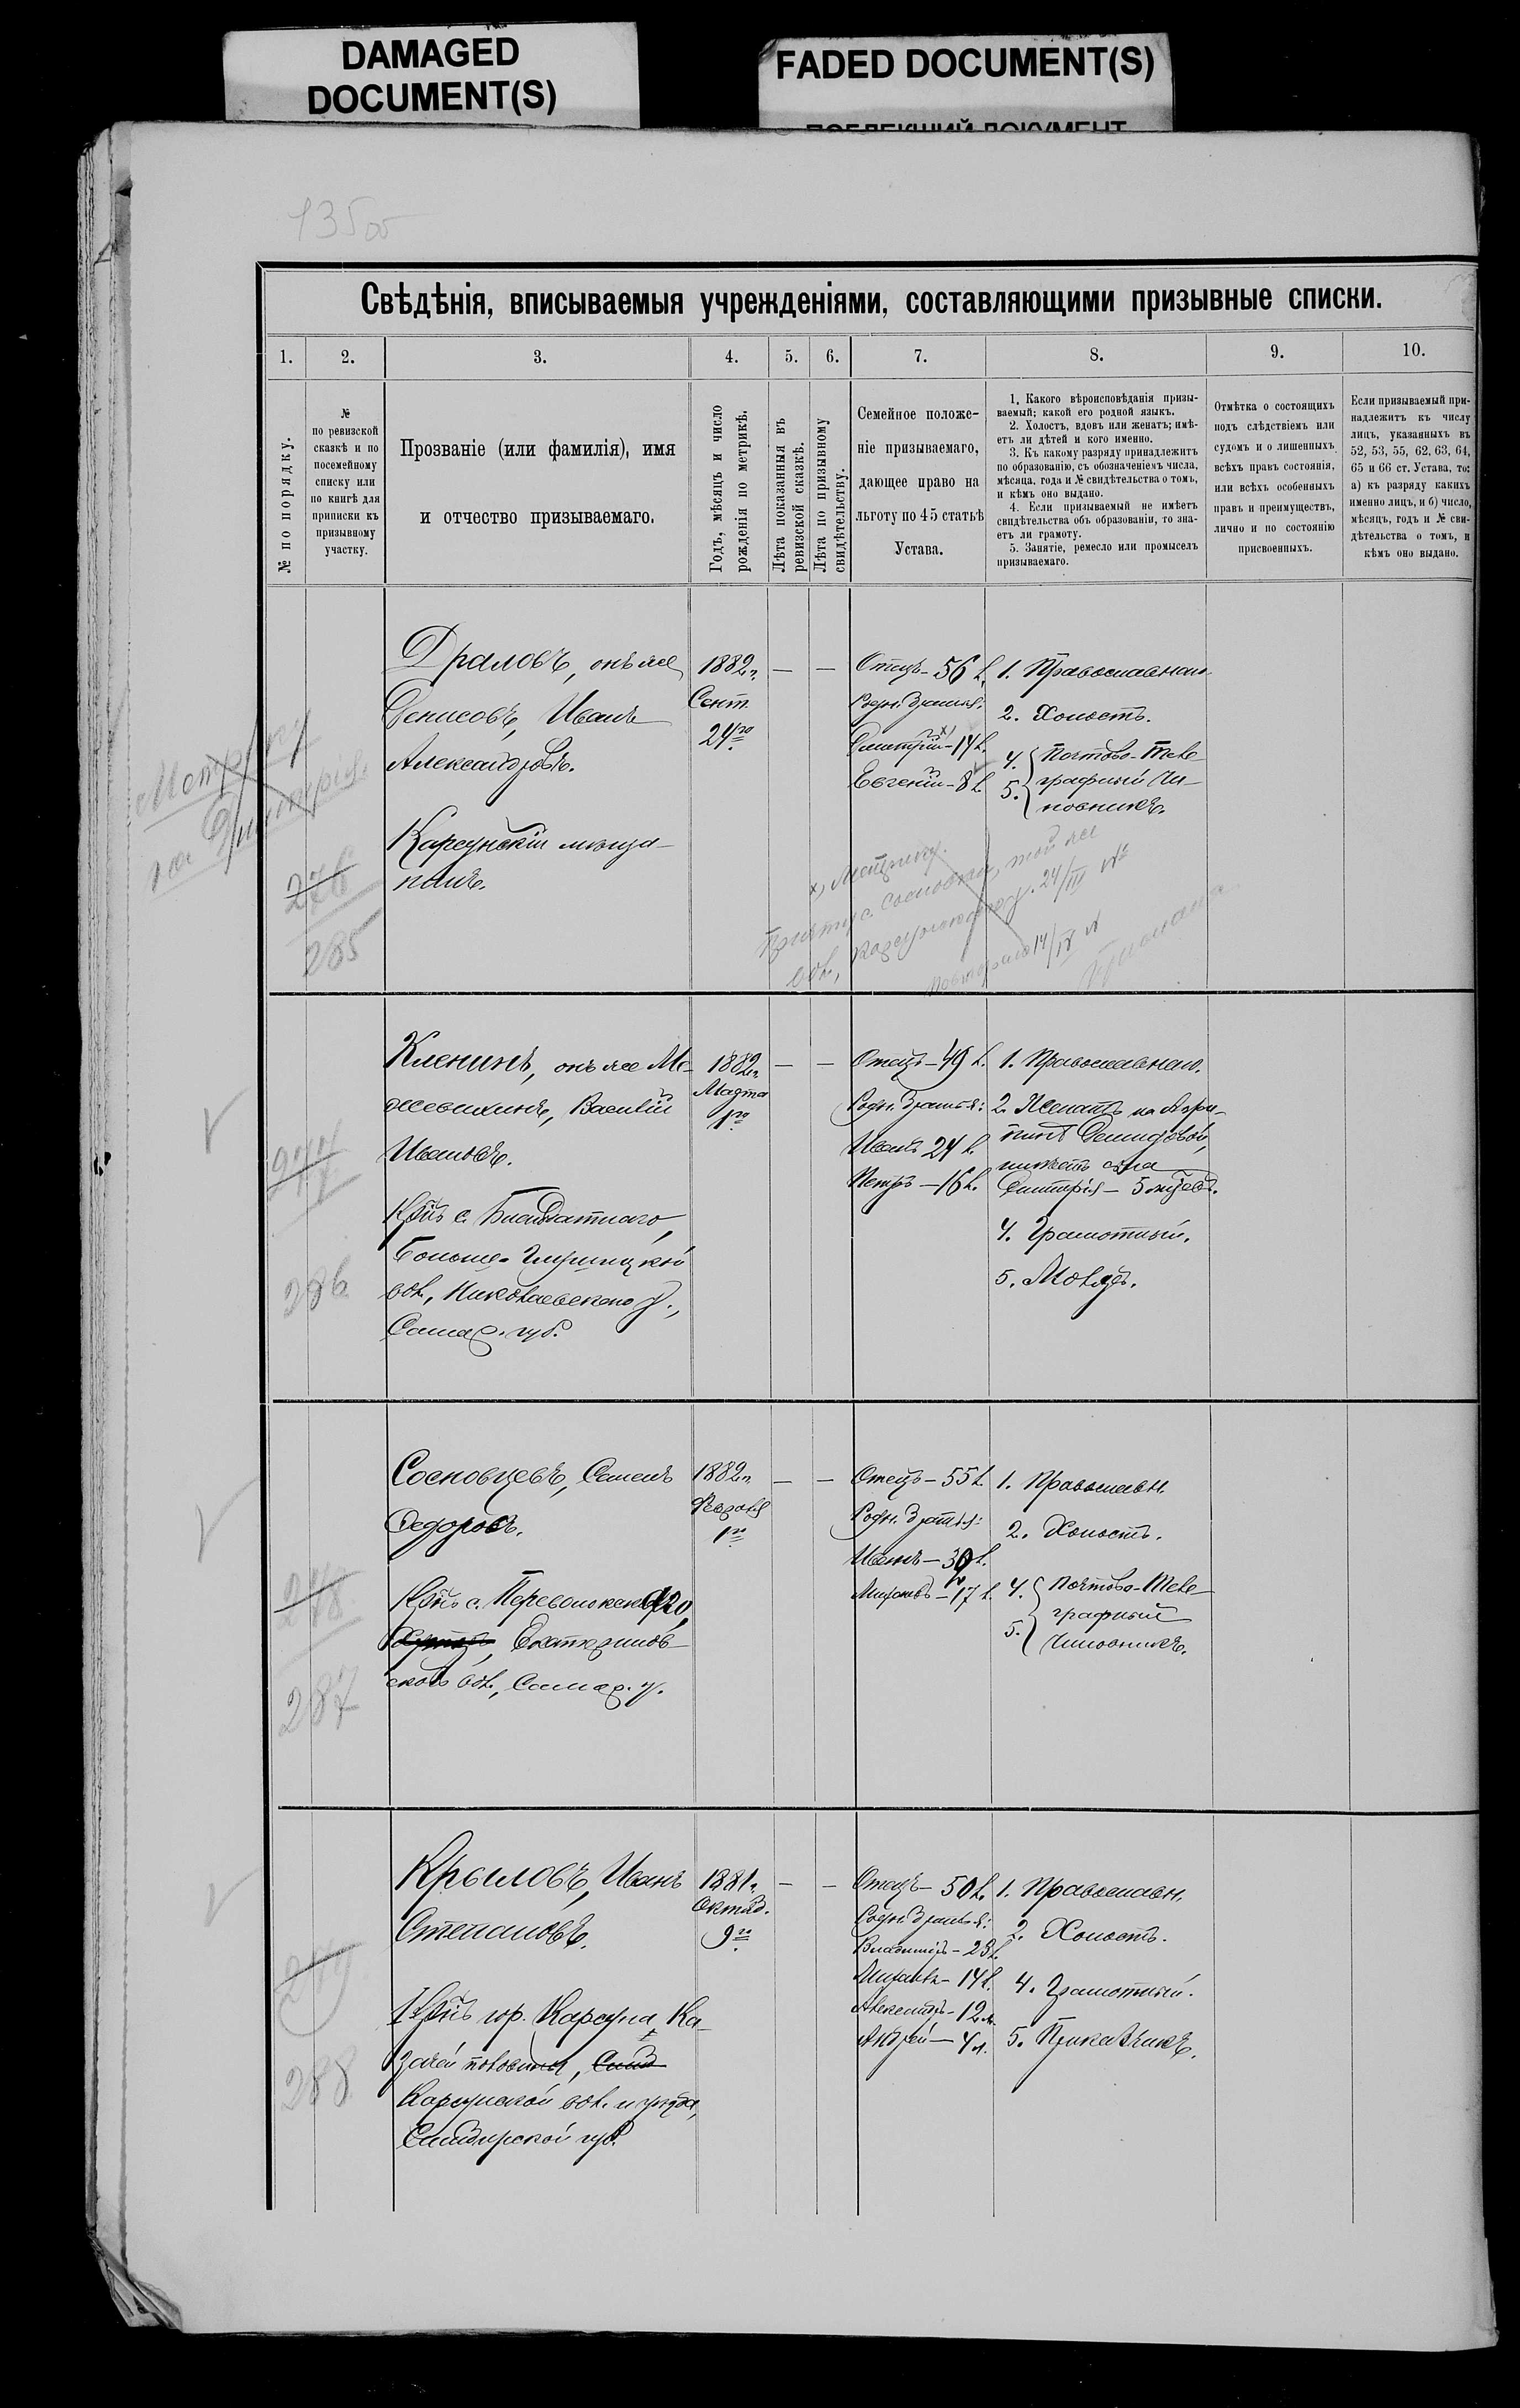 DAMAGED
DOCUMENT(S)
FADED DOCUMENT(S)
135 об
Свѣдѣнія, вписываемыя учрежденіями, составляющими призывные списки.
1.
2.
3.
4.
5.
6.
7.
8.
9.
10.
№ по порядку.
№
по ревизской
сказкѣ и по
посемейному
списку или
по книгѣ для
приписки къ
призывному
участку.
Прозваніе (или фамилія), имя
и отчество призываемаго.
Годъ, мѣсяцъ и число
рожденія по метрикѣ.
Лѣта показанныя въ
ревизской сказкѣ.
Лѣта по призывному
свидѣтельству.
Семейное положе-
ніе призываемаго,
дающее право на
льготу по 45 статьѣ
Устава.
1. Какого вѣроисповѣданія призы-
ваемый; какой его родной языкъ.
2. Холостъ, вдовъ или женатъ; имѣ-
етъ ли дѣтей и кого именно.
3. Къ какому разряду принадлежитъ
по образованію, съ обозначеніемъ числа,
мѣсяца, года и № свидѣтельства о томъ,
и кѣмъ оно выдано.
4. Если призываемый не имѣетъ
свидѣтельства объ образованіи, то зна-
етъ ли грамоту.
5. Занятіе, ремесло или промыселъ
призываемаго.
Отмѣтка о состоящихъ
подъ слѣдствіемъ или
судомъ и о лишенныхъ
всѣхъ правъ состоянія,
или всѣхъ особенныхъ
правъ и преимуществъ,
лично и по состоянію
присвоенныхъ.
Если призываемый при-
надлежитъ къ числу
лицъ, указанныхъ въ
52, 53, 55, 62, 63, 64,
65 и 66 ст. Устава, то:
а) къ разряду какихъ
именно лицъ, и б) число,
мѣсяцъ, годъ и № сви-
дѣтельства о томъ, и
кѣмъ оно выдано.
Метрику
на Дмитрія
276
285
Драловъ, онъ же
Денисовъ, Иванъ
Александровъ.
Карсунскій мѣща-
нинъ.
1882 г.
Сент.
24го
—
—
Отецъ - 56 л.
Родн. братья:
Дмитрій - 14 л.
Евгеній - 8 л.
1. Православнаго
2. Холостъ.
4.
5.
Почтово-Теле
графный Чи-
новникъ.
х) Метрику
причту с. Сосновки, той же
вол., Карсунскаго у. 24/III
Повторено 14/IV
277
286
Кленинъ, онъ же Ме-
жевикинъ, Василій
Ивановъ.
Кр-нъ с. Благодатнаго,
Больше-Глушицкой
вол., Николаевскаго у.,
Самар. губ.
1882 г.
Марта
1го
—
—
Отецъ - 49 л.
Родн. братья:
Иванъ 24 л.
Петръ - 16 л.
1. Православнаго.
2. Женатъ на Агри-
пинѣ Демидовой,
имѣетъ сына
Дмитрія - 5 мѣсяц.
4. Грамотный.
278
287
Сосновцевъ, Семенъ
Федоровъ.
Кр-нъ с. Переволокскаго,
Екатеринов-
ской вол., Самар. у.
1882 г.
Февраля
1го
—
—
Отецъ - 55 л.
Родн. братья:
Иванъ - 30 л.
Михаилъ - 17 л.
1. Православн.
2. Холостъ.
4.
5.
Почтово-Теле-
графный
Чиновникъ.
279
288
Крыловъ, Иванъ
Степановъ.
Кр-нъ гор. Карсуна, Ка-
зачей половины, Симб
Карсунской вол. и уѣзда,
Симбирской губ.
1881 г.
Октяб.
9го
—
—
Отецъ - 50 л.
Родн. братья:
Владиміръ - 23 л.
Михаилъ - 14 л.
Александръ - 12 л.
Андрей - 4 л.
1. Православн.
2. Холостъ.
4. Грамотный.
5. Прикащикъ.